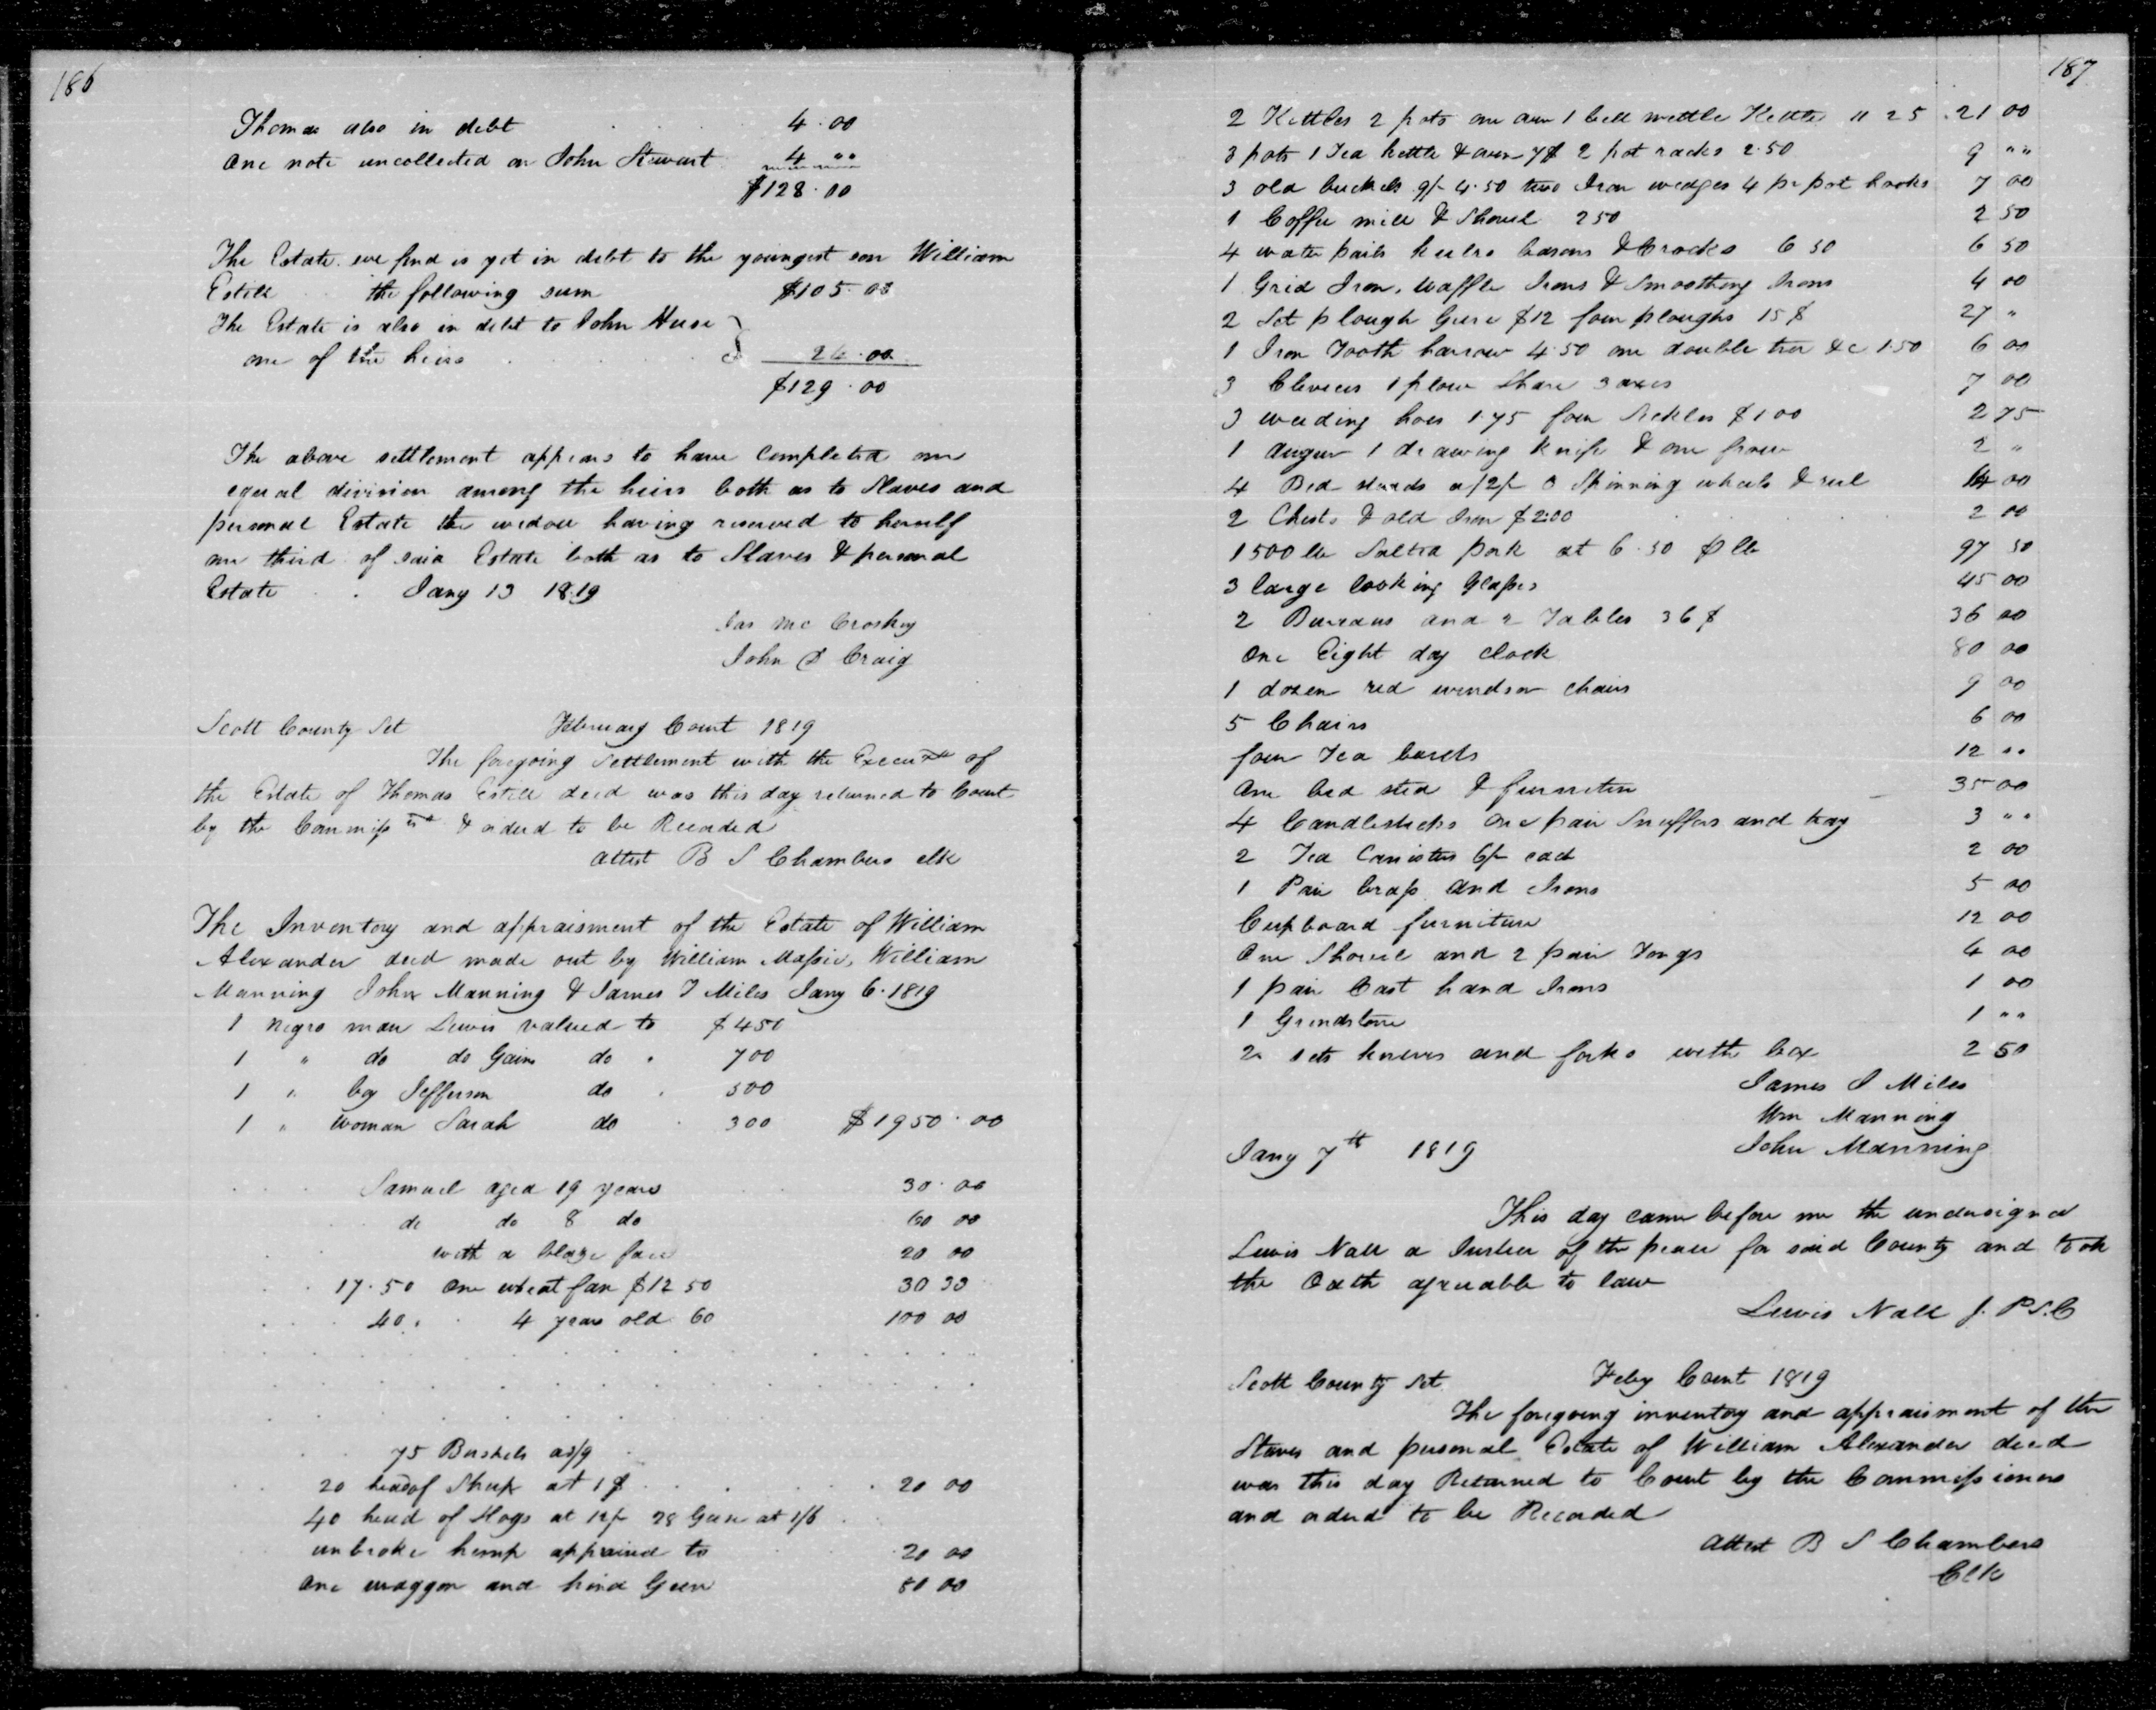 186
Thomas also in debt 4.00
One note uncollected on John Stewart 4 "
$128.00
The Estate we find is yet in debt to the youngest son William
Estill the following sum $105.00
The Estate is also in debt to John Huse
one of the heirs 24.00
$129.00
The above settlement appears to have completed an
equal division among the heirs both as to Slaves and
personal Estate the widow having reserved to herself
one third of said Estate both as to Slaves & personal
Estate Jany 13 1819
Jas McCroskey
John D Craig
Scott County Sct February Court 1819
The foregoing Settlement with the Execu of
the Estate of Thomas Estill decd was this day returned to Court
by the Commiss & ordered to be Recorded
Attest B S Chambers clk
The Inventory and appraisment of the Estate of William
Alexander decd made out by William Massie, William
Manning John Manning & James J Miles Jany 6. 1819
1 negro man Lewis valued to $450
1 " do do Gain do 700
1 " boy Jefferson do 500
1 " woman Sarah do 300 $1950.00
Samuel aged 19 years 30.00
do do 8 do 60 00
with a blaze face 20 00
17.50 One wheat fan $12 50 30 30
40. 4 years old 60 100 00
75 Bushels as/9
20 head of Sheep at 1$ 20 00
40 head of Hogs at 12/ 28 Geese at 1/6
unbroke hemp appraised to 20 00
One waggon and hind Geer 80 00
187
2 Kettles 2 pots one oven 1 bell mettle Kettle 25 21 00
3 pots 1 Tea kettle & oven 7$ 2 pot racks 2.50 9 ""
3 old buckets 9/ 4.50 two Iron wedges 4 pr pot hooks 7 00
1 Coffee mill & Shovel 2 50 2 50
4 water pails basons & Crocks 6 50 6 50
1 Grid Iron, Waffle Irons & Smoothing Irons 4 00
2 Set plough Geere $12 four ploughs 15$ 27 "
1 Iron Tooth harrow 4.50 one double tree &c 1.50 6 00
3 Clevices 1 plow Share 3 axes 7 00
3 weeding hoes 1.75 four Sickles $1 00 2 75
1 Auger 1 drawing knife & one frow 2 "
4 Bed steads a/2/ 3 Spinning wheels & reel 14 00
2 Chests & old Iron $2.00 2 00
1500 lb Salted pork at 6.50 p lb 97 50
3 large looking Glasses 45 00
2 Bureaus and 2 Tables 36$ 36 00
One Eight day clock 80 00
1 dozen red windsor chairs 9 00
5 Chairs 6 00
four Tea boards 12 ""
One bed sted & furniture 35 00
4 Candlesticks One pair Snuffers and tray 3 ""
2 Tea Canisters 6/ each 2 00
1 Pair brass and Irons 5 00
Cupboard furniture 12 00
One Shovel and 2 pair Tongs 4 00
1 pair Cast hand Irons 1 00
1 Grindstone 1 ""
2 sets knives and forks with box 2 50
James J Miles
Wm Manning
Jany 7th 1819 John Manning
This day came before me the undersigned
Lewis Nall a Justice of the peace for said County and took
the Oath agreeable to law
Lewis Nall J. P S.C
Scott County Sct Feby Court 1819
The foregoing inventory and appraisment of the
Slaves and personal Estate of William Alexander decd
was this day Returned to Court by the Commissioners
and orderd to be Recorded
Attest B S Chambers
Clk